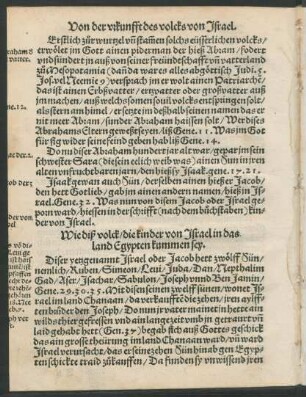 Von der vrkunfft des volcks von Jsrael.
Erstlich zur wurtzel vñ stamen solchs eusserlichen volcks/
erwölet jm Gott ainen piderman der hieß Abram/ fodert
vnd sündert jn auß von seiner freündtschafft vñ vatterland
zů Mesopotamia (dañ da war es alles abgöttisch Judi. 5.
Jos. vel Neemie 9) versprach jm er wölt ainen Patriarche/
das ist ainen Erbvatter/ ertzvatter oder großvatter auß
jm machen/ auß welchs somen souil volcks entspringen solt/
als stern am himel/ er setzt jm deßhalb seinen namen das er
nit meer Abram/ sunder Abraham haissen solt/ Wer dises
Abrahams Eltern geweßt seyen/ liß Gene. 11. Was jm Got
für sig wider sein feind geben hab liß Gene. 14.
Do nu diser Abraham hundert jar alt war/ gepar jm sein
schwester Sara (die sein eelich weib was) ainen Sun in jren
alten vnfruchtbarn jarn/ den hieß sy Jsaac. gene. 17. 21.
Jsaac gewan auch Sün/ der selben ainen hieß er Jacob/
den hett Got lieb/ gab jm ainen andern namen/ hieß jn Js-
rael. Gene. 32. Was nun von disem Jacob oder Jsrael ge-
porn ward/ hiessen in der schrifft (nach dem bůchstaben) kin-
der von Jsrael.
Wie diß volck/ die kinder von Jsrael in das
land Egypten kummen sey.
Diser yetzgenannt Jsrael oder Jacob hett zwölff Sün
nemlich/ Ruben/ Simeon/ Leui/ Juda/ Dan/ Nepthalim
Gad/ Aser/ Jsachar/ Sabulon/ Joseph vnnd Ben Jamin/
Gen. 29. 30. 35. Mit disen seinen zwelf sünen/ wonet Js-
rael im land Chanaan/ da verkaufft die zehen/ jren aylff-
ten brůder den Joseph/
laid gehabt hett (Gen. 37) begab sich auß Gottes geschick
das ain grosse theürung im land Chanaan ward/ vñ ward
Jsrael verursacht/ das er seine zehen Sün hinab gen Egyp-
ten schickte traid zů kauffen/ Da funden sy vnwissend jren